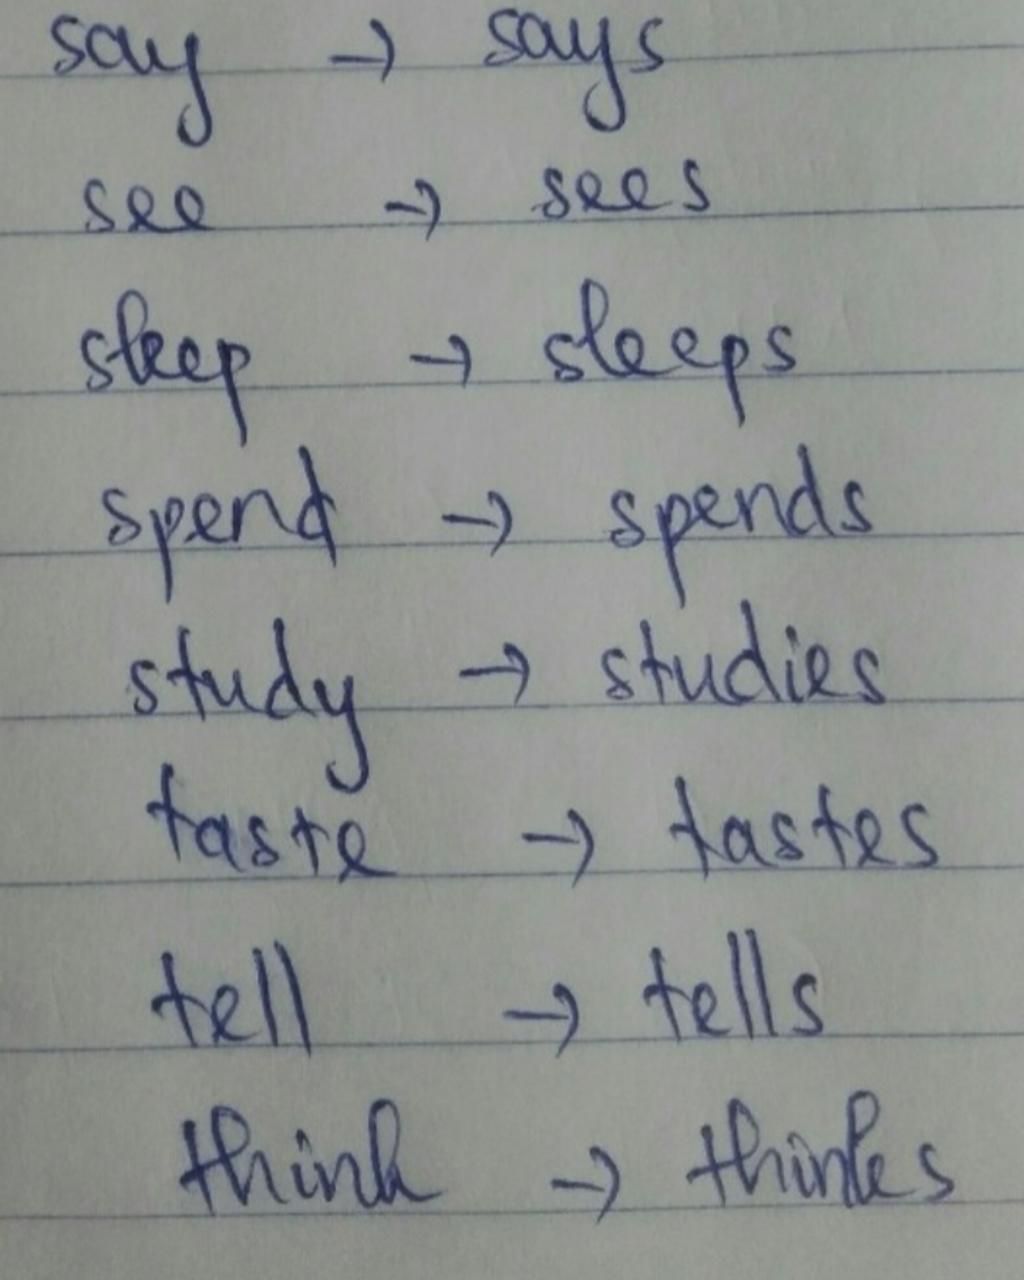 say → says
see → sees
sleep → sleeps
spend → spends
study → studies
taste → tastes
tell → tells
think → thinks